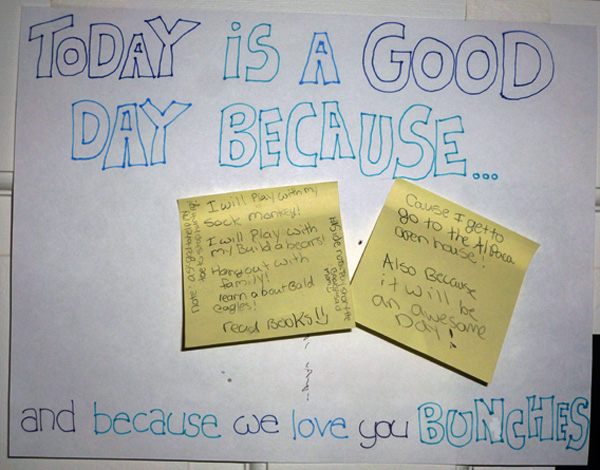 TODAY iS A GOOD
DAY BECAUSE...
I will Play with my
Sock monkey!
I will Play with
my Build a bears!
Hang out with
family!
learn about Bald
eagles!
read Books!!
Note:
Cause I get to
go to the Alpaca
open house!
Also Because
it will be
an awesome
Day!
and because we love you BUNCHES